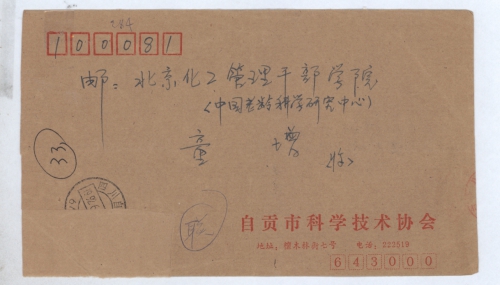 100081
邮：北京化工管理干部学院
（中国老龄科学研究中心）
童 增 收
33
自贡市科学技术协会
地址：檀木林街七号 电话：223519
643000